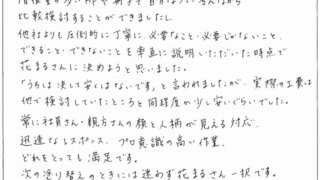 比較検討することができましたし、
他社よりも圧倒的に丁寧に、必要なこと・必要じゃないこと、
できること・できないことを率直に説明いただいた時点で
花まるさんに決めようと思いました。
「うちは決して安くはないです」と言われましたが、実際の工費は
他で検討していたところと同程度か少し安いぐらいでした。
常に社員さん・親方さんの顔と人柄が見える対応、
迅速なレスポンス、プロ意識の高い作業、
どれをとっても満足です。
次の塗り替えのときには迷わず花まるさん一択です。